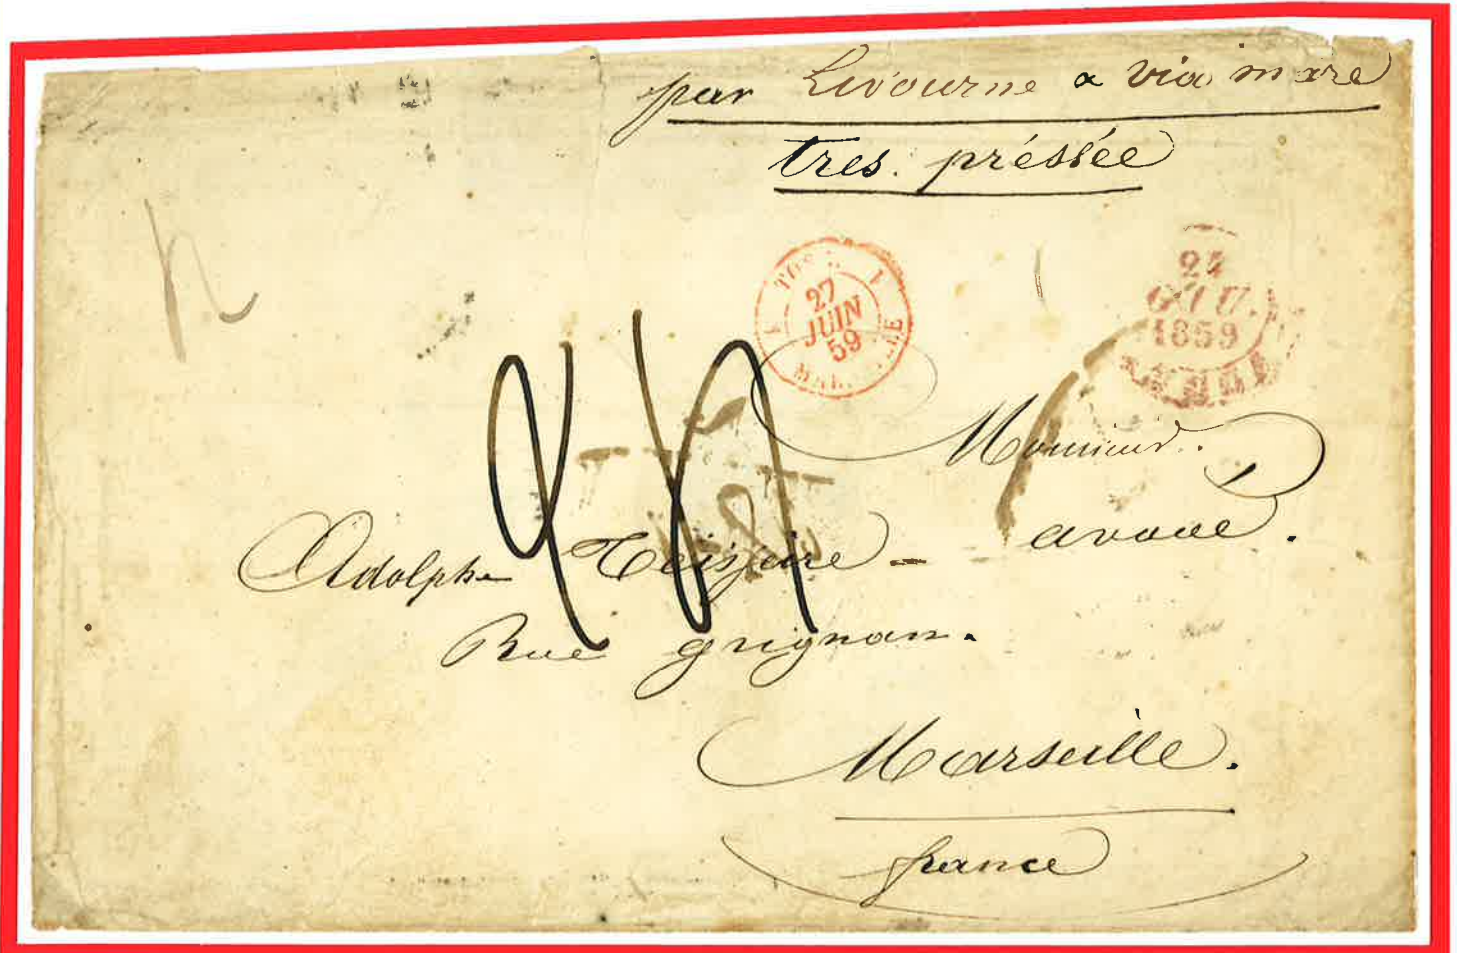 par Livourne a via mare
tres. préssée
27
JUIN
59
24
GIU.
1859
Monsieur.
Adolphe Teisseire - avoué.
Rue grignan.
Marseille.
france